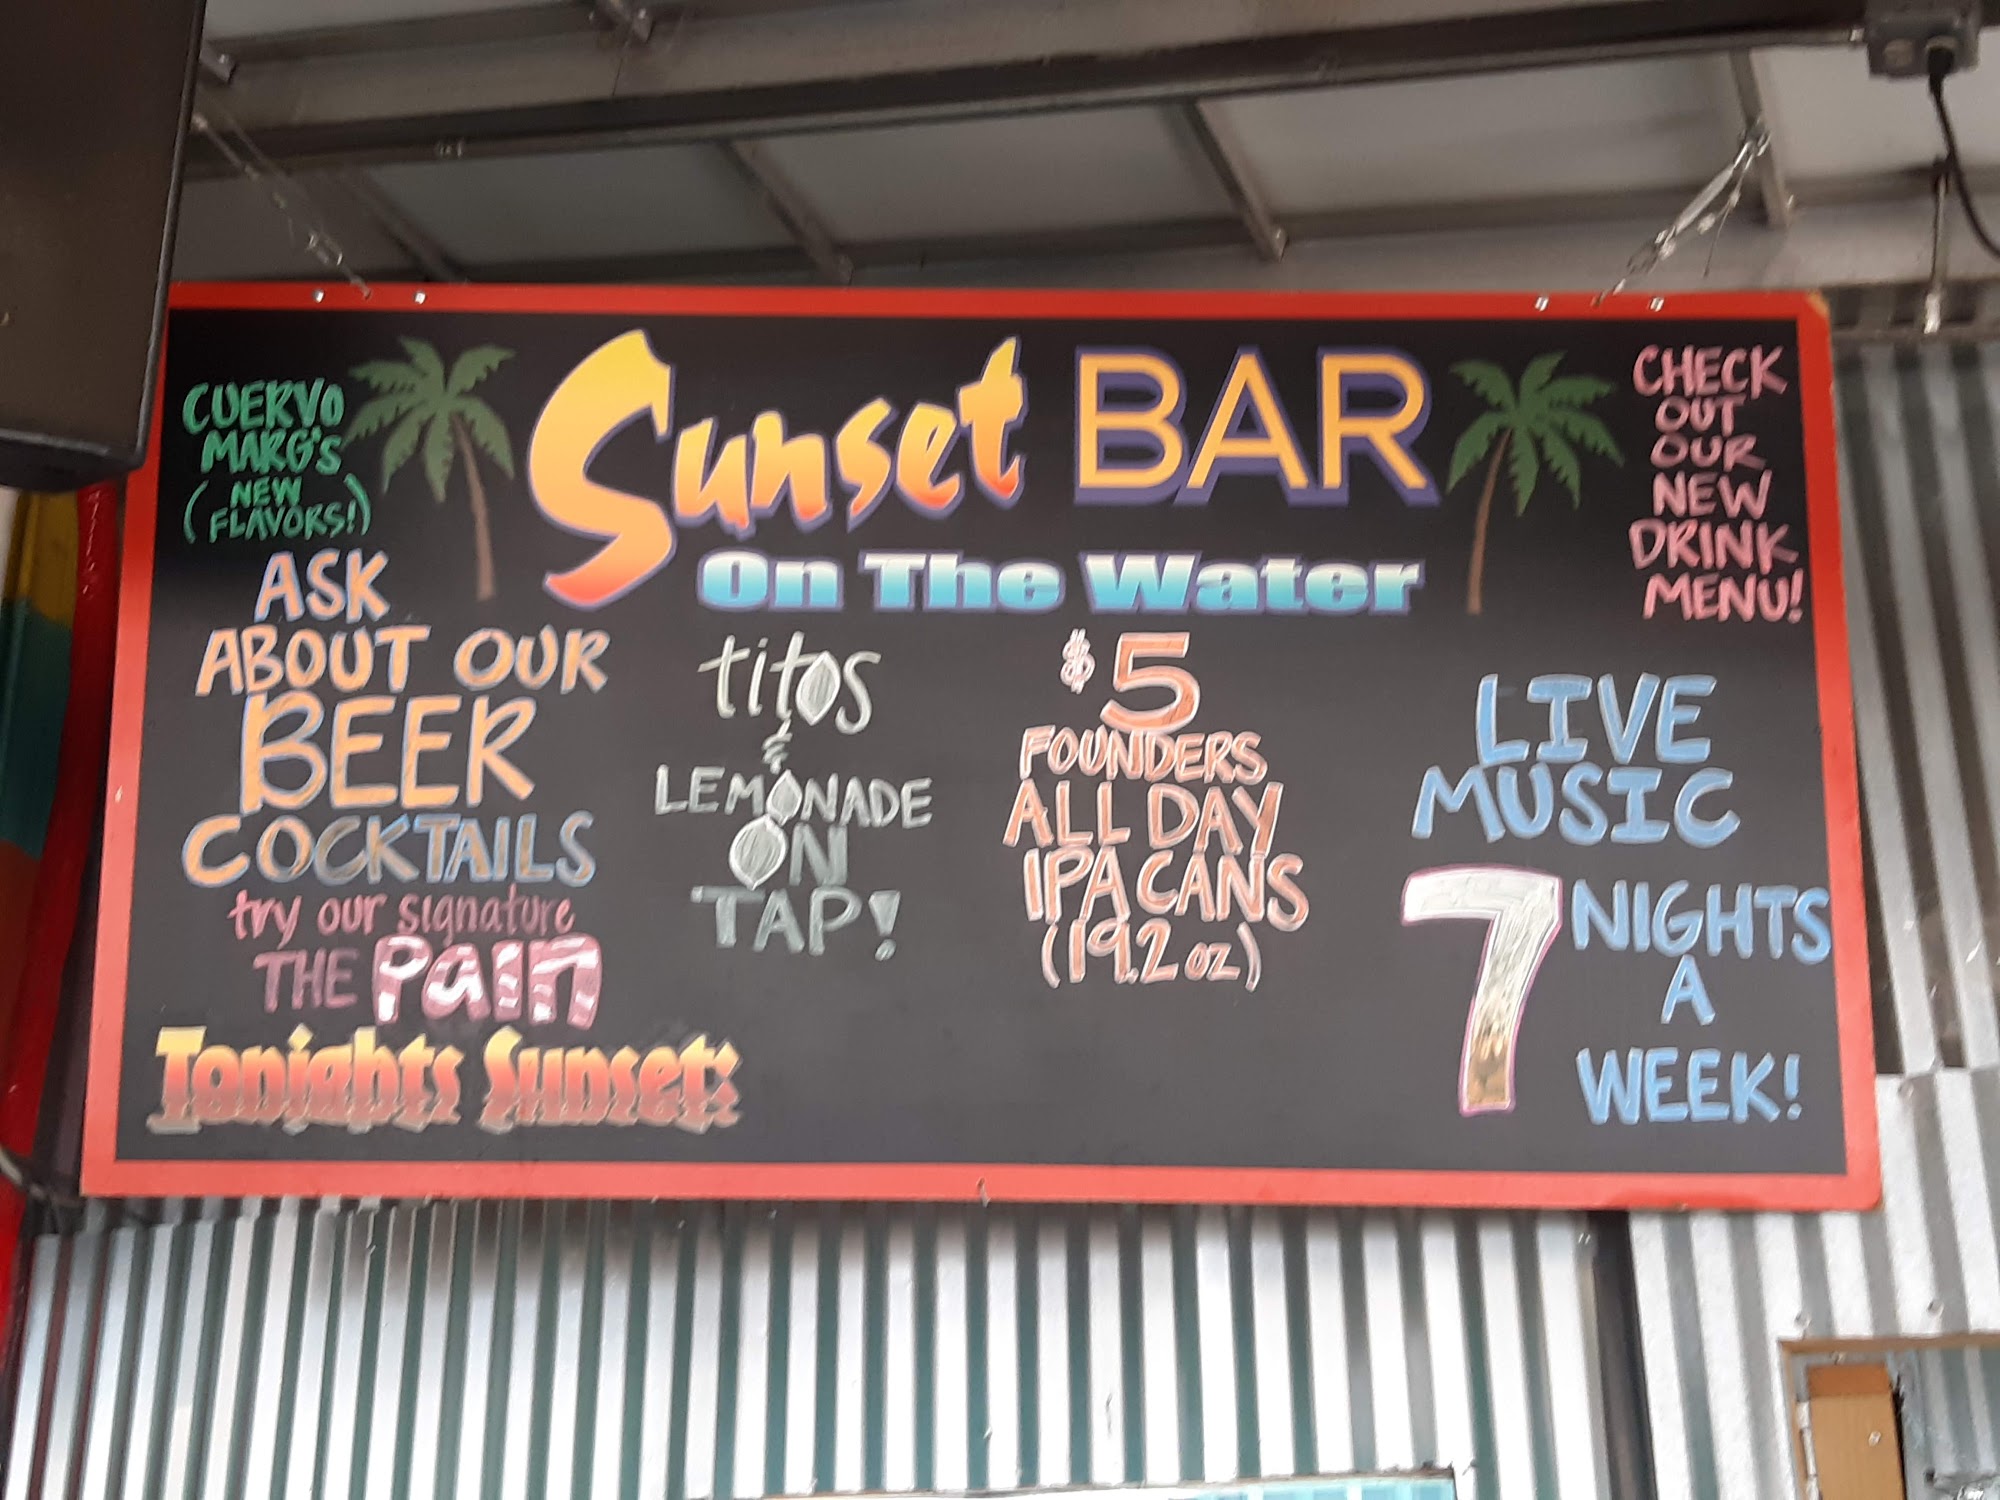 Sunset BAR
On The Water
CUERVO
MARG'S
(NEW
FLAVORS!)
ASK
ABOUT OUR
BEER
COCKTAILS
try our signature
THE PAIN
Tonights Sunset:
titos
&
LEMONADE
ON
TAP!
$5
FOUNDERS
ALL DAY
IPA CANS
(19.2 oz)
CHECK
OUT
OUR
NEW
DRINK
MENU!
LIVE
MUSIC
7 NIGHTS
A
WEEK!